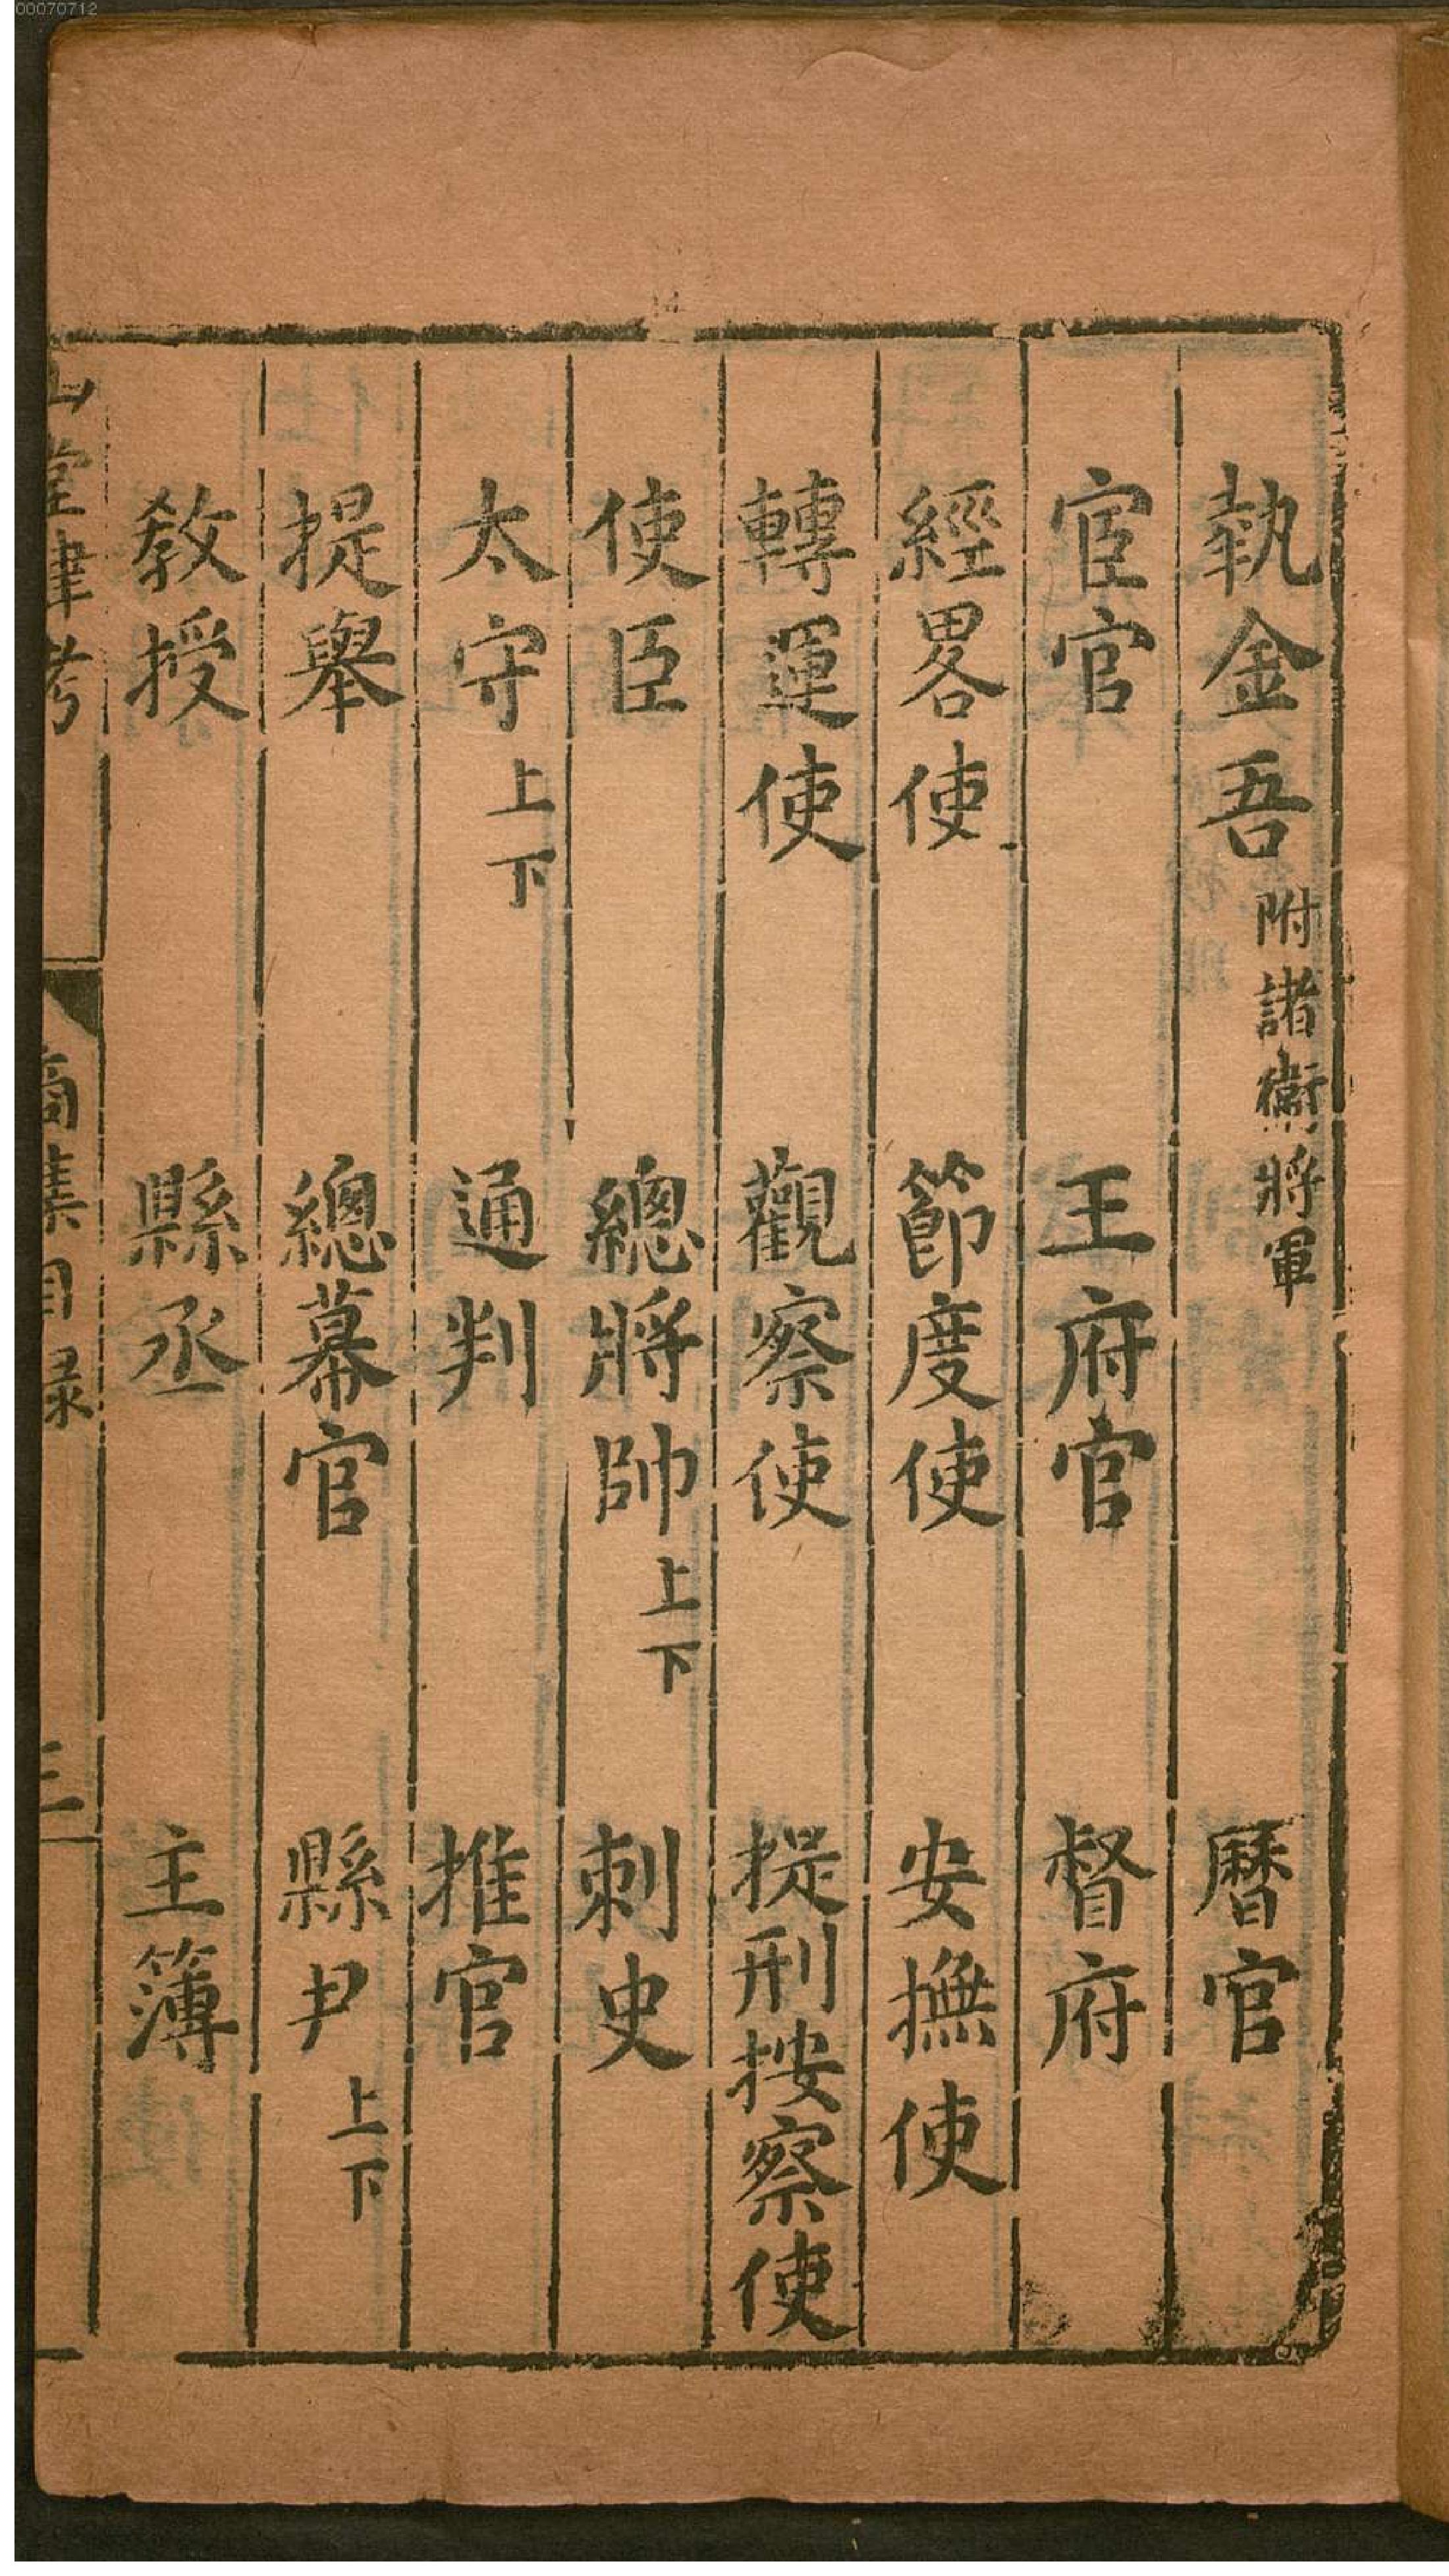 00070712
執金吾 附諸衛將軍 曆官
宦官 王府官 督府
經畧使 節度使 安撫使
轉運使 觀察使 提刑按察使
使臣 總將帥 上下 刺史
太守 上下 通判 推官
提舉 總幕官 縣尹 上下
教授 縣丞 主簿
山堂肆考 商集目錄 三